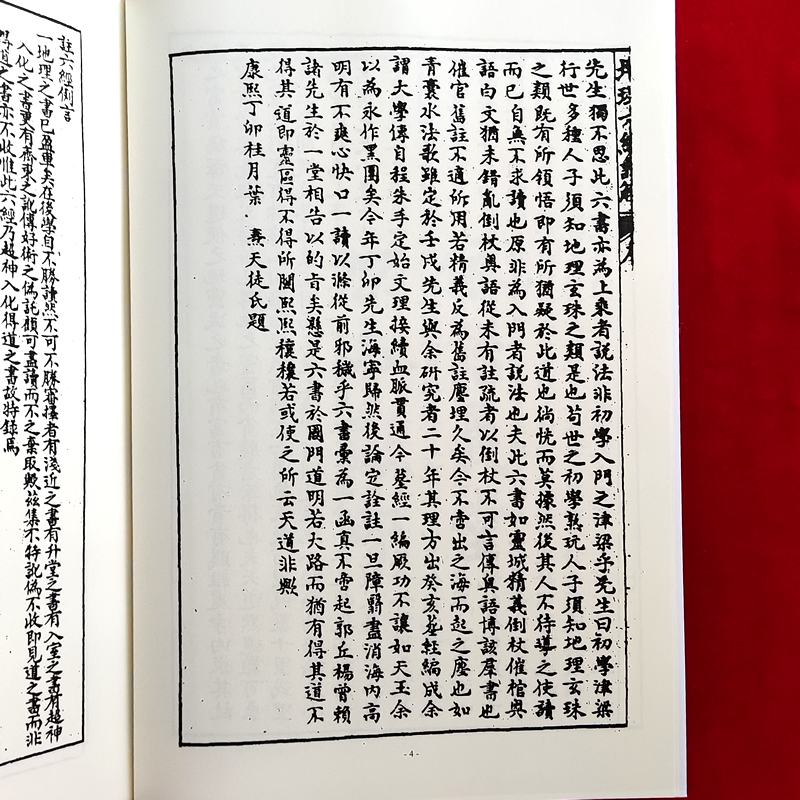 先生獨不思此六書亦為上乘者說法非初學入門之津梁乎先生曰初學津梁
行世多種人子須知地理玄珠之類是也苟世之初學熟玩人子須知地理玄珠
之類既有所領悟即有所猶疑於此道也徜恍而莫據然後其人不待導之使讀
而已自無不求讀也原非為入門者說法也夫此六書如靈城精義倒杖催棺與
語白文猶未錯亂倒杖奧語從未有註疏者以倒杖不可言傳奧語博該羣書也
催官舊註不適所用若精義反為舊註塵埋久矣今不啻出之海而起之塵也如
青囊水法歌雖定於壬戌先生與余研究者二十年其理方出癸亥葬經編成余
謂大學傳自程朱手定始文理接續血脈貫通今葬經一編厥功不讓如天玉余
以為永作黑團矣今年丁卯先生海寧歸然後論定詮註一旦障翳盡消海內高
明有不爽心快口一讀以滌從前邪穢乎六書彙為一函真不啻起郭丘楊曾賴
諸先生於一堂相告以的旨矣懸是六書於國門道明若大路而猶有得其道不
得其道即靈區得不得所關熙熙穰穰若或使之所云天道非歟
康熙丁卯桂月葉·燾天徒氏題
- 4 -
註六經例言
一地理之書已盈車矣在後學自不勝讀然不可不勝審擇者有淺近之書有升堂之書有入室之書有超神
入化之書更有齊東之訛傳好術之偽託顧可盡讀而不之棄取毀茲集不特訛偽不收即見道之書而非
得道之書亦不收惟此六經乃超神入化得道之書故特錄焉